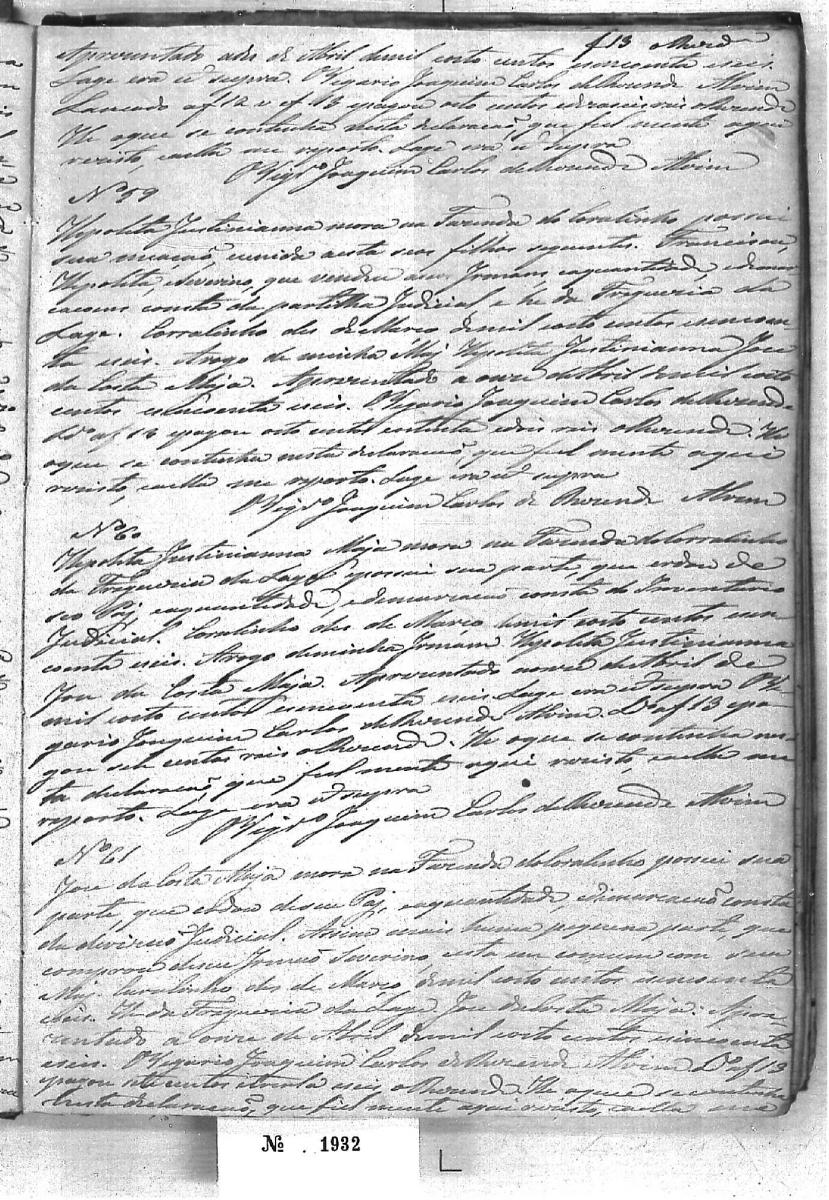 f 13 Alvim
Apresentado a des de Abril de mil oito centos e sincoenta e seis.
Lage era ut supra. O Vigario Joaquim Carlos de Rezende Alvim
Lancado a f 12 v e f 13 e pagou oito centos e reis o Rezende
He o que se continha nesta declaração, que fiel mente aqui
rezisto, e a ella me reporto. Lage era ut supra
O Vigr.o Joaquim Carlos de Rezende Alvim
N.o 59
Hypolita Justinianna mora na Fazenda do Coralinho possui
sua meação, e unida a esta seos filhos seguintes. Francisca,
Hypolita, e Severino, que vendeo a seos Irmaos, e a quantidade e demar
cacoens consta da partilha Judicial e he da Freguezia da
Lage. Corralinho des de Março de mil e oito centos e sincoen
ta e seis. A rogo de minha Mai Hypolita Justinianna Jose
da Costa Maja. Apresentado a onze de Abril de mil e oito
centos e sincoenta e seis. O Vigario Joaquim Carlos de Rezende
L.o a f 13 e pagou oito centos e reis, o Rezende. He
o que se continha nesta declaração, que fiel mente aqui
rezisto, e a ella me reporto. Lage era ut supra
O Vigr.o Joaquim Carlos de Rezende Alvim
N.o 60
Hypolita Justinianna Maja mora na Fazenda do Corralinho
da Freguezia da Lage possui sua parte, que erdou de
seo Paj, e a quantidade, e demarcação consta do Inventario
Judicial. Coralinho des de Março de mil e oito centos e sin
coenta e seis. A rogo de minha Irmam Hypolita Justinianna
Jose da Costa Maja. Apresentado a onze de Abril de
mil e oito centos e sincoenta e seis. Lage era ut supra O Vi
gario Joaquim Carlos de Rezende Alvim. L.o a f 13 e pa
gou sete centos reis o Rezende. He o que se continha nes
ta declaração, que fiel mente aqui rezisto, e a ella me
reporto. Lage era ut supra
O Vigr.o Joaquim Carlos de Rezende Alvim
N.o 61
Jose da Costa Maja mora na Fazenda do Coralinho possui sua
parte, que erdou de seu Paj, e a quantidade, e demarcação consta
da divizão Judicial. Assim mais huma pequena parte, que
comprou de seu Irmão Severino, esta em comum com sua
Maj. Coralinho des de Março de mil e oito centos e sincoenta
e seis. He da Freguezia da Lage. Jose da Costa Maja. Apre
zentado a onze de Abril de mil e oito centos e sincoenta
e seis. O Vigario Joaquim Carlos de Rezende Alvim L.o a f 13
e pagou sete centos e trinta e seis, o Rezende. He o que se continha
nesta declaração, que fiel mente aqui rezisto, e a ella me
№ . 1932